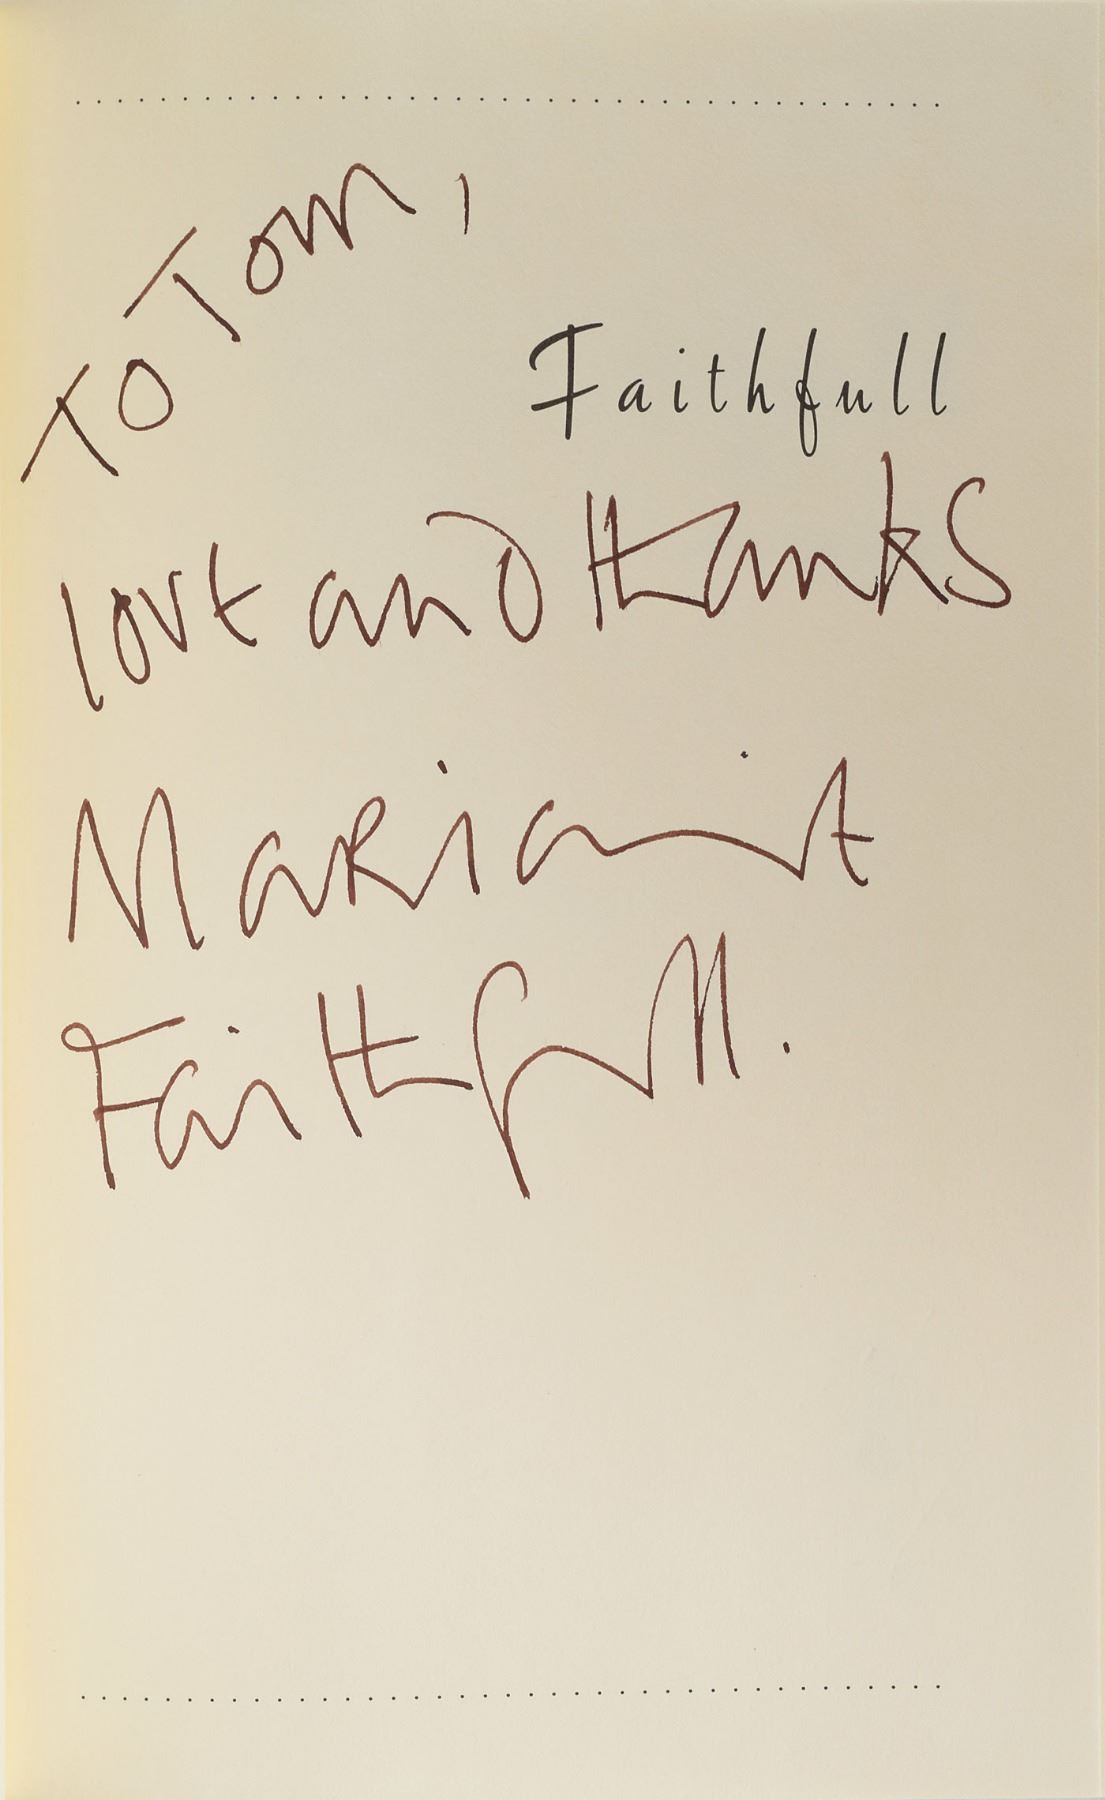 To Tom,
Faithfull
love and thanks
Marianne
Faithfull.